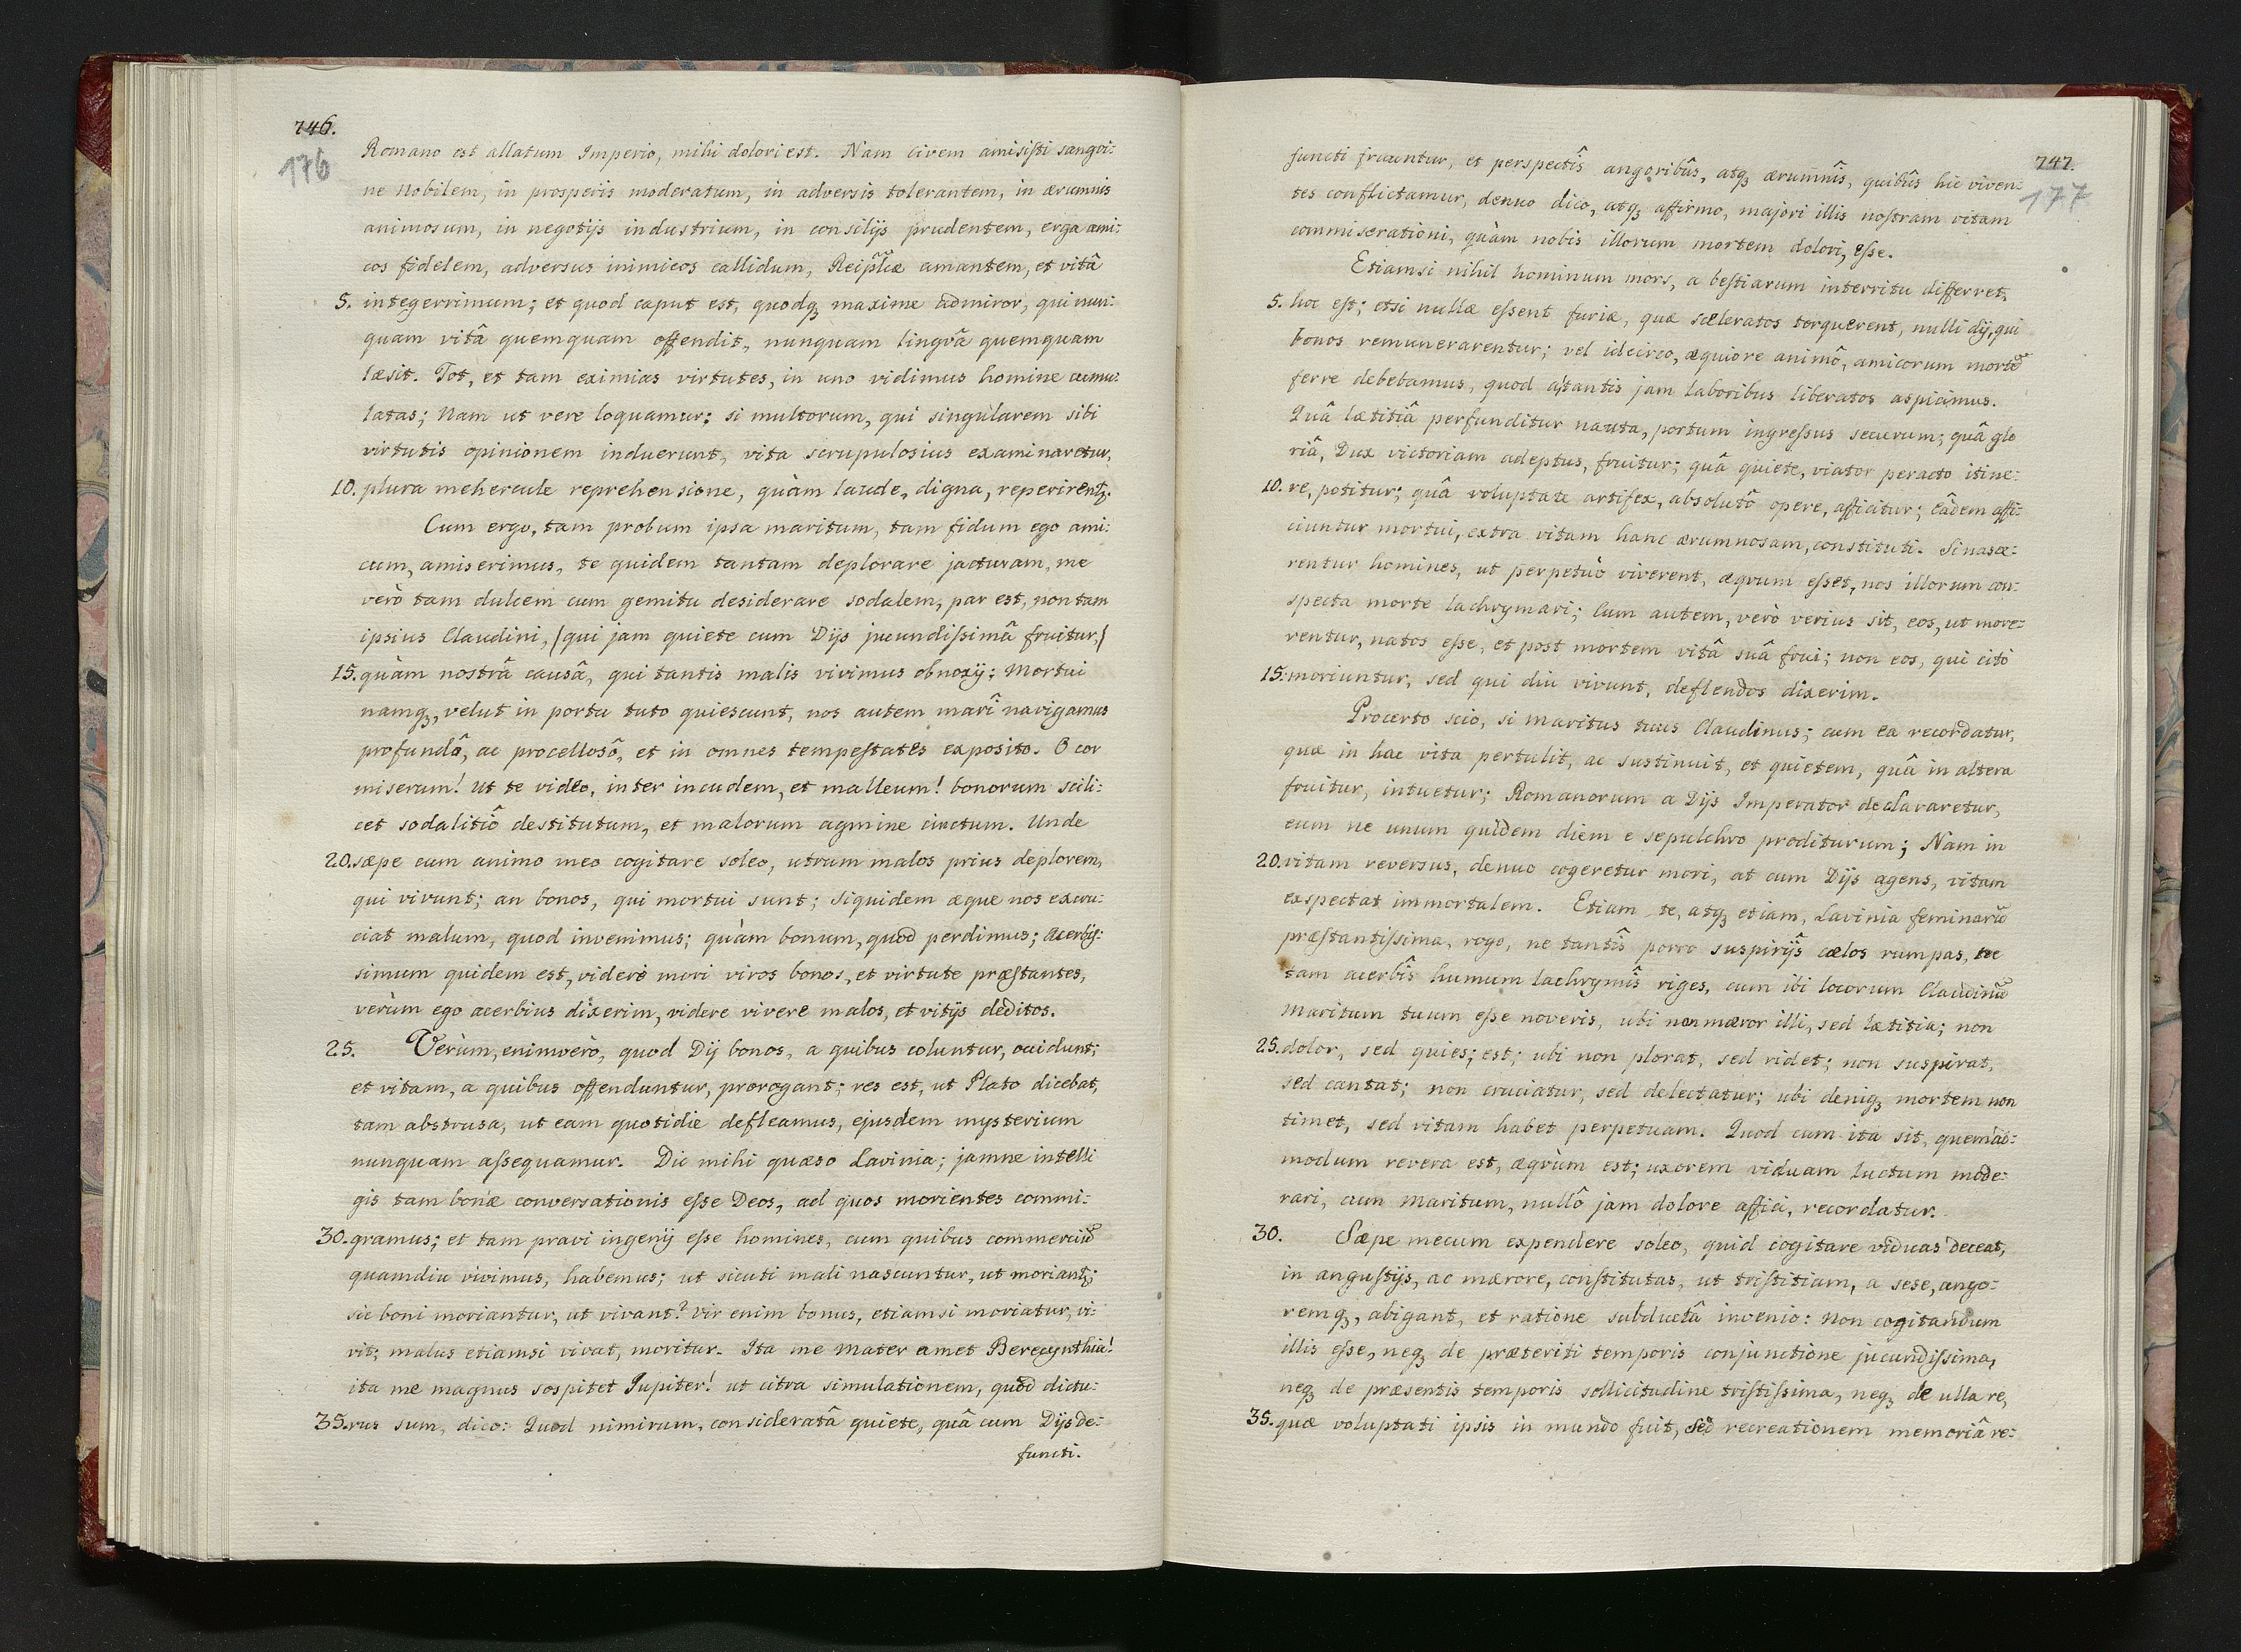 746.
176
Romano est allatum Imperio, mihi dolori est. Nam civem amisisti sangvi:
ne nobilem, in prosperis moderatum, in adversis tolerantem, in ærumnis
animosum, in negotijs industrium, in consilijs prudentem, erga ami:
cos fidelem, adversus inimicos callidum, Reipl̃cæ amantem, et vitâ
5. integerrimum; et quod caput est, quodqꝫ maxime admiror, qui nun:
quam vitâ quemquam offendit, nunquam lingvâ quemquam
læsit. Tot, et tam eximias virtutes, in uno vidimus homine cumu:
latas; Nam ut vere loquamur; si multorum, qui singularem sibi
virtutis opinionem induerunt, vita scrupulosius examinaretur,
10. plura mehercule reprehensione, quàm laude, digna, reperirentꝫ.
Cum ergo, tam probum ipsa maritum, tam fidum ego ami:
cum, amiserimus, te quidem tantam deplorare jacturam, me
verò tam dulcem cum gemitu desiderare sodalem, par est, non tam
ipsius Claudini, (qui jam quiete cum Dijs jucundissimâ fruitur,)
15. quàm nostrâ causâ, qui tantis malis vivimus obnoxij; Mortui
namqꝫ, velut in portu tuto quiescunt, nos autem marî navigamus
profundô, ac procellosô, et in omnes tempestates exposito. O cor
miserum! Ut te video, inter incudem, et malleum! bonorum scili:
cet sodalitiô destitutum, et malorum agmine cinctum. Unde
20. sæpe cum animo meo cogitare soleo, utrum malos prius deplorem,
qui vivunt; an bonos, qui mortui sunt; siquidem æque nos excru:
ciat malum, quod invenimus; quàm bonum, quod perdimus; Acerbis:
simum quidem est, videre mori viros bonos, et virtute præstantes,
verùm ego acerbius dixerim, videre vivere malos, et vitijs deditos.
25. Verùm, enimverò, quod Dij bonos, a quibus coluntur, occidunt;
et vitam, a quibus offenduntur, prorogant; res est, ut Plato dicebat,
tam abstrusa, ut eam quotidie defleamus, ejusdem mysterium
nunquam assequamur. Dic mihi quæso Lavinia; jamne intelli
gis tam bonæ conversationis esse Deos, ad quos morientes commi:
30. gramus; et tam pravi ingenij esse homines, cum quibus commerciũ
quamdiu vivimus, habemus; ut sicuti mali nascuntur, ut moriantꝫ;
sic boni moriantur, ut vivant? vir enim bonus, etiamsi moriatur, vi:
vit; malus etiamsi vivat, moritur. Ita me Mater amet Berecynthia!
ita me magnus sospitet Jupiter! ut citra simulationem, quod dictu:
35. rus sum, dico: Quod nimirum, consideratâ quiete, quâ cum Dijs de:
functi.
747.
177
functi fruuntur, et perspectîs angoribûs, atqꝫ ærumnîs, quibûs hic viven:
tes conflictamur, denuo dico, atqꝫ affirmo, majori illis nostram vitam
commiserationi, quàm nobis illorum mortem dolori, esse.
Etiamsi nihil hominum mors, a bestiarum interritu differret,
5. hoc est; etsi nullæ essent furiæ, quæ sceleratos torquerent, nulli dij, qui
bonos remunerarentur; vel idcirco, æquiore animô, amicorum mortẽ
ferre debebamus, quod a tantis jam laboribus liberatos aspicimus.
Quâ lætitiâ perfunditur nauta, portum ingressus securum; quâ glo
riâ, Dux victoriam adeptus, fruitur; quâ quiete, viator peracto itine:
10. re, potitur; quâ voluptate artifex, absolutô opere, afficitur; eâdem affi:
ciuntur mortui, extra vitam hanc ærumnosam, constituti. Si nasce:
rentur homines, ut perpetùo viverent, æqvum esset, nos illorum con:
specta morte lachrymari; Cum autem, verò verius sit, eos, ut more:
rentur, natos esse, et post mortem vitâ suâ frui; non eos, qui citò
15. moriuntur, sed qui diu vivunt, deflendos dixerim.
Procerto scio, si maritus tuus Claudinus; cum ea recordatur,
quæ in hac vita pertulit, ac sustinuit, et quietem, quâ in altera
fruitur, intuetur; Romanorum a Dijs Imperator declararetur,
eum ne unum quidem diem e sepulchro proditurum; Nam in
20. vitam reversus, denuo cogeretur mori, at cum Dijs agens, vitam
exspectat immortalem. Etiam te, atqꝫ etiam, Lavinia feminarũ
præstantissima, rogo, ne tantîs porro suspirijs cælos rumpas, ne
tam acerbîs humum lachrymîs riges, cum ibi locorum Claudinũ
Maritum tuum esse noveris, ubi non mæror illi, sed lætitia; non
25. dolor, sed quies; est; ubi non plorat, sed ridet; non suspirat,
sed cantat; non cruciatur, sed delectatur; ubi deniqꝫ mortem non
timet, sed vitam habet perpetuam. Quod cum ita sit, quemad:
modum revera est, æqvùm est; uxorem viduam luctum mode:
rari, cum maritum, nullô jam dolore affici, recordatur.
30. Sæpe mecum expendere soleo, quid cogitare viduas deceat,
in angustijs, ac mærore, constitutas, ut tristitiam, a sese, ango:
remqꝫ, abigant, et ratione subductâ invenio: Non cogitandum
illis esse, neqꝫ de præteriti temporis conjunctione jucundissima,
neqꝫ de præsentis temporis sollicitudine tristissima, neqꝫ de ulla re,
35. quæ voluptati ipsis in mundo fuit, Sed recreationem memoriâ re: